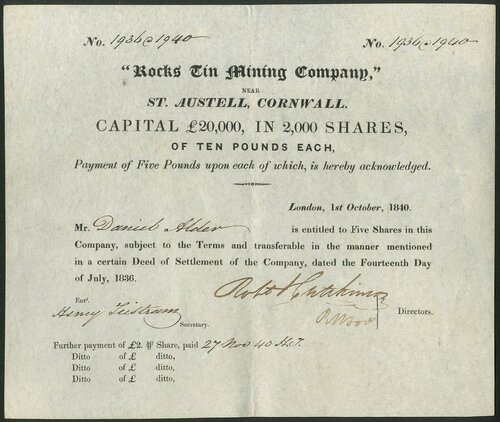 No. 1936@1940 No. 1936@1940
"Rocks Tin Mining Company,"
NEAR
ST. AUSTELL, CORNWALL.
CAPITAL £20,000, IN 2,000 SHARES,
OF TEN POUNDS EACH,
Payment of Five Pounds upon each of which, is hereby acknowledged.
London, 1st October, 1840.
Mr. Daniel Alder is entitled to Five Shares in this
Company, subject to the Terms and transferable in the manner mentioned
in a certain Deed of Settlement of the Company, dated the Fourteenth Day
of July, 1836.
Robt Hutchinson
Entd.
Henry Tristram
Directors.
Secretary.
Further payment of £2. ⅌ Share, paid 27 Nov 40 H.T.
Ditto of £ ditto,
Ditto of £ ditto,
Ditto of £ ditto,